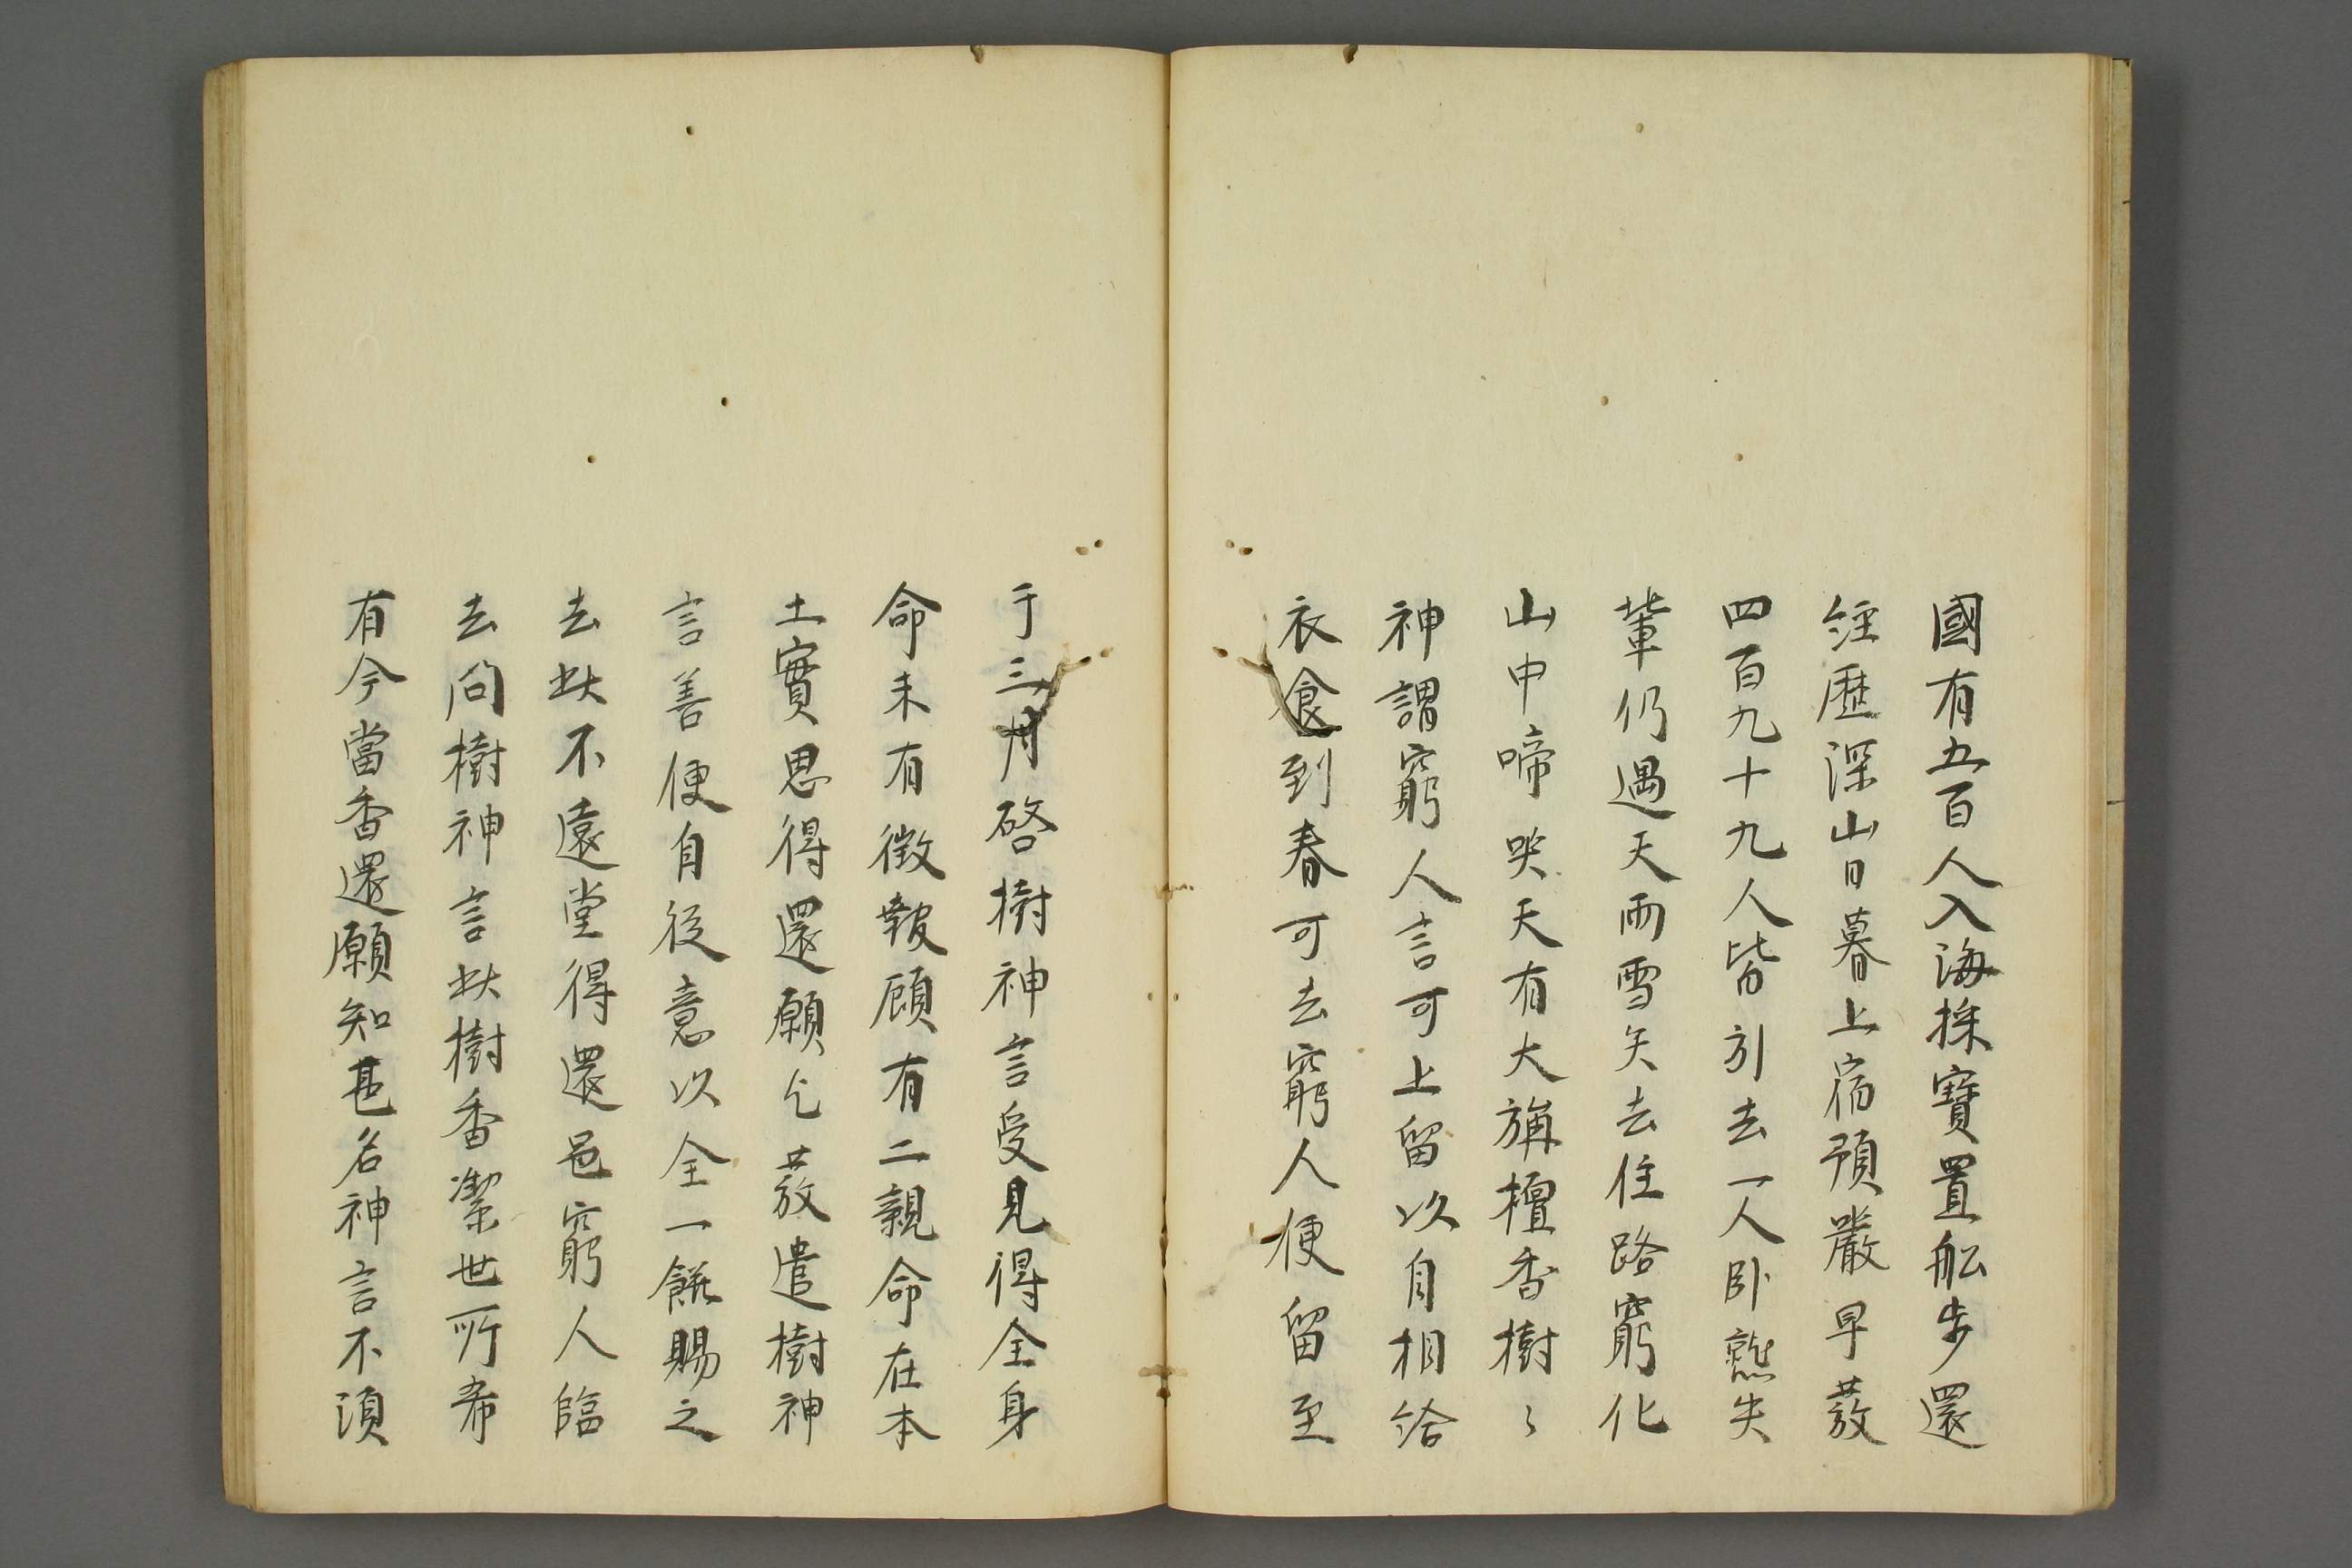 國有五百人入海採寶置船步還
經歷深山日暮上宿預嚴早發
四百九十九人皆引去一人臥熟失
輩仍遇天雨雪矢去住路窮化
山中啼哭天有大旃檀香樹〻
神謂窮人言可上留以自相給
衣食到春可去窮人便留至
于三月啓樹神言受見得全身
命未有微報顧有二親命在本
土實思得還願乞發遣樹神
言善便自從意以金一餅賜之
去此不遠當得還邑窮人臨
去問樹神言此樹香潔世所希
有今當香還願知甚名神言不須